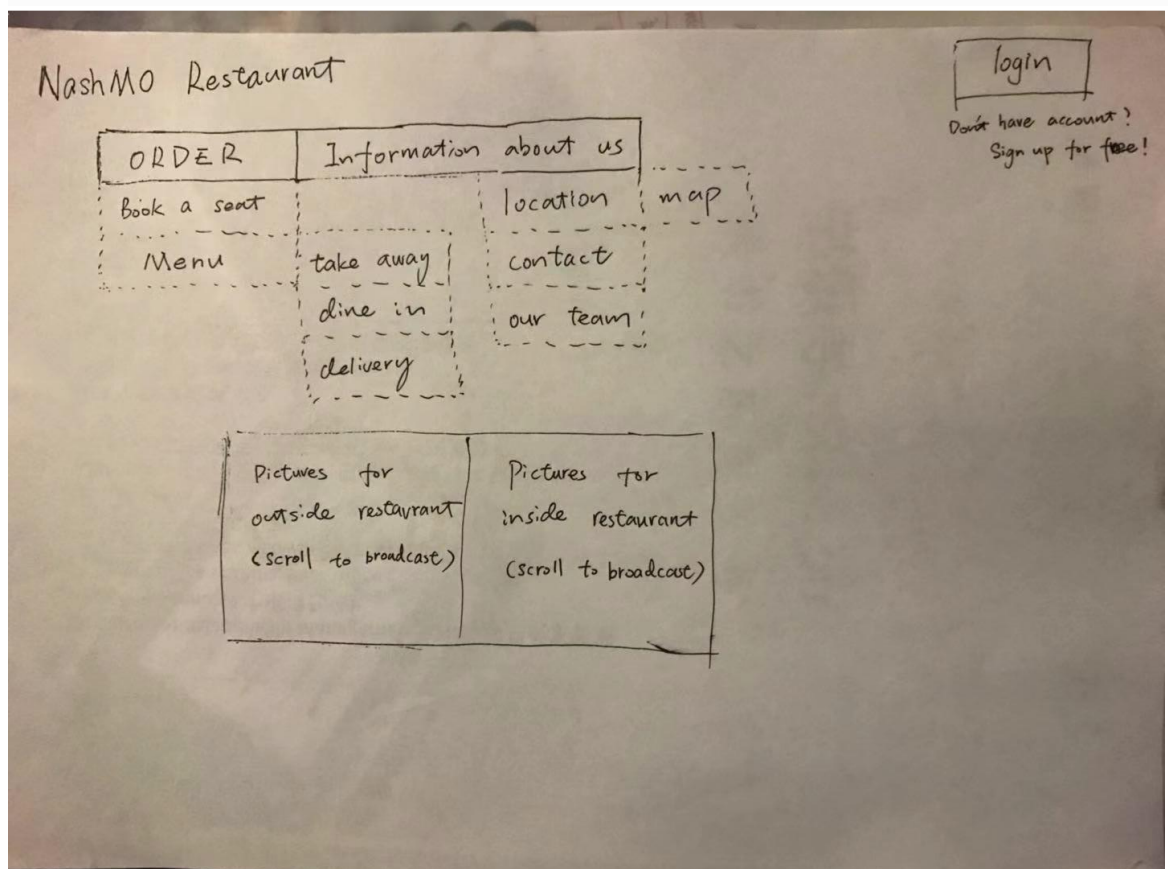 NashMO Restaurant
login
Don't have account?
Sign up for free!
ORDER Information about us
Book a seat location map
Menu take away contact
dine in our team
delivery
Pictures for
outside restaurant
(scroll to broadcast)
Pictures for
inside restaurant
(scroll to broadcast)